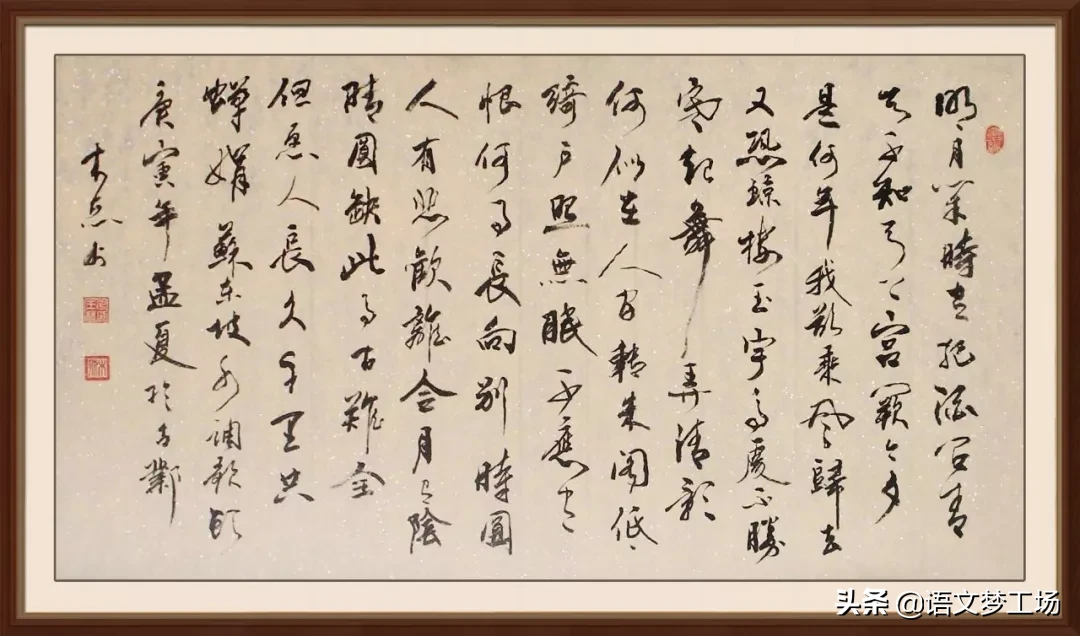 明月幾時有把酒問青
天不知天上宮闕今夕
是何年我欲乘風歸去
又恐瓊樓玉宇高處不勝
寒起舞弄清影
何似在人間轉朱閣低
綺戶照無眠不應有
恨何事長向別時圓
人有悲歡離合月有陰
晴圓缺此事古難全
但願人長久千里共
嬋娟蘇東坡水調歌頭
庚寅年孟夏於古
书
头条 @语文梦工场